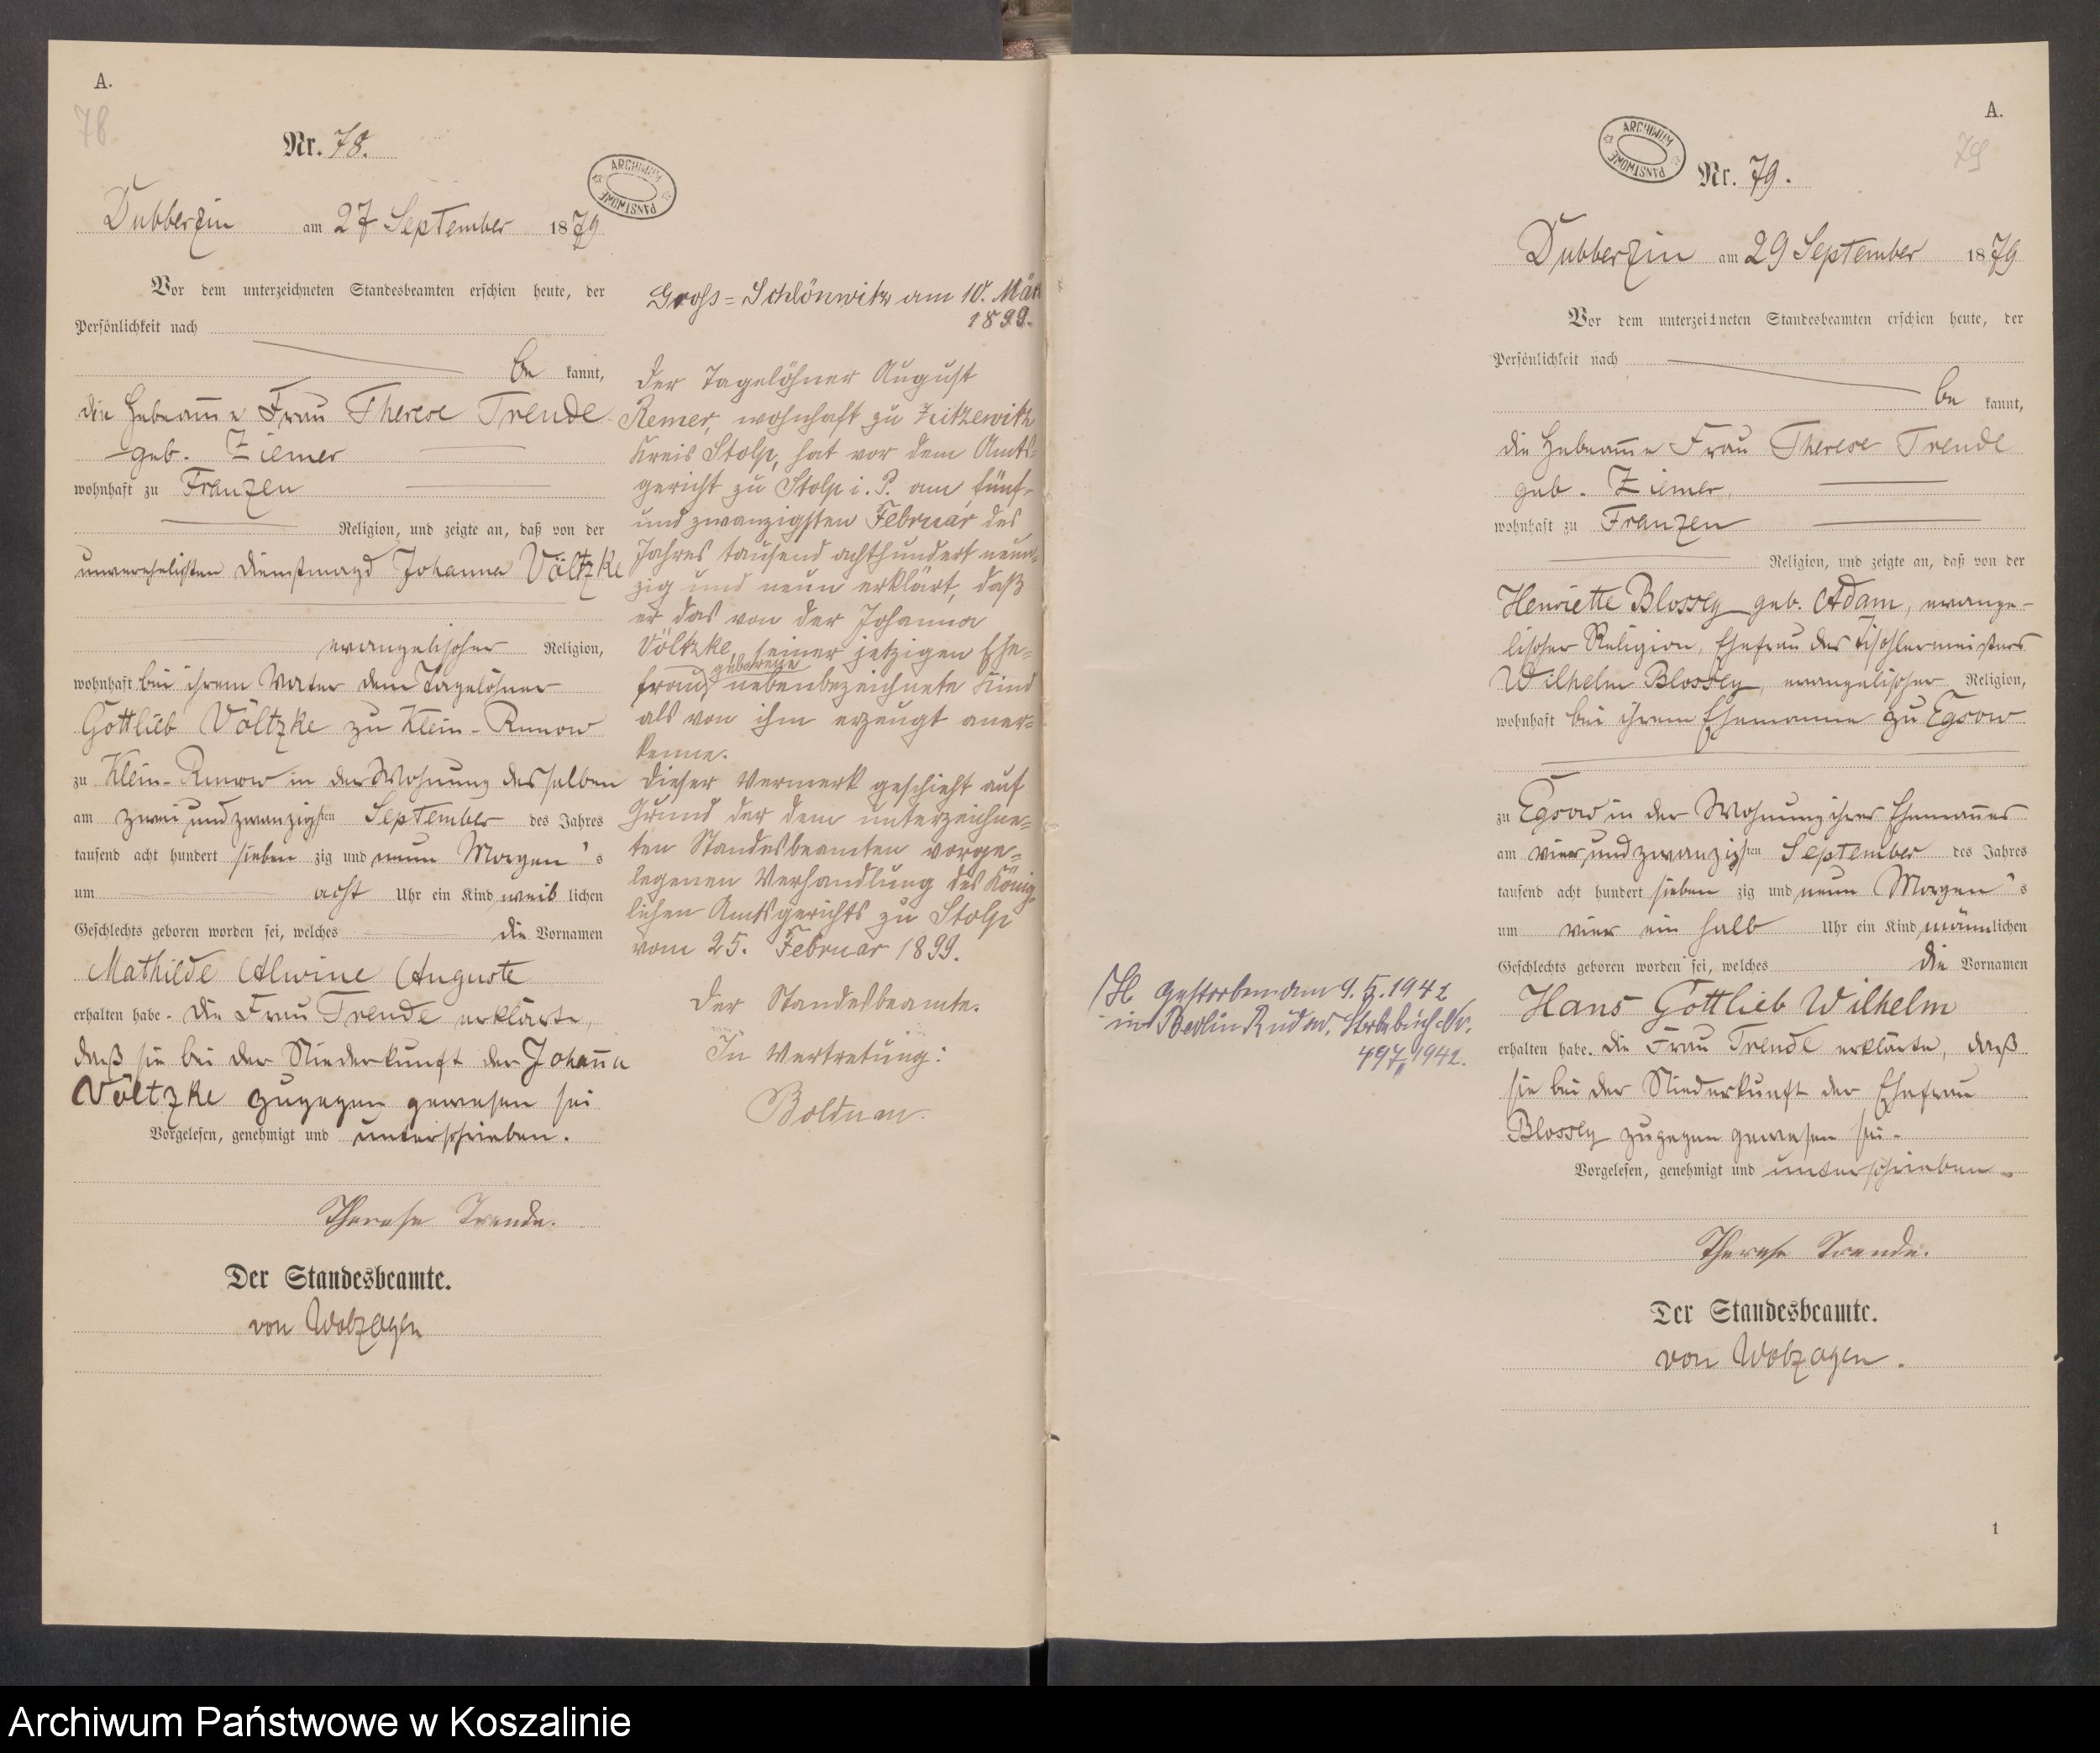 A.
78
Nr. 78.
ARCHIWUM PAŃSTWOWE
Dubberzin am 27 September 1879
Vor dem unterzeichneten Standesbeamten erschien heute, der
Persönlichkeit nach
be kannt,
die Hebeam̄e Frau Therese Trende
geb. Ziemer
wohnhaft zu Franzen
Religion, und zeigte an, daß von der
unverehelichten Dienstmagd Johanna Völtzke
evangelischer Religion,
wohnhaft bei ihrem Vater dem Tagelöhner
Gottlieb Völtzke zu Klein-Runow
zu Klein-Runow in der Wohnung desselben
am zwei und zwanzigsten September des Jahres
tausend acht hundert sieben zig und neun Morgen's
um acht Uhr ein Kind weib lichen
Geschlechts geboren worden sei, welches die Vornamen
Mathilde Alwine Auguste
erhalten habe. Die Frau Trende erklärte,
daß sie bei der Niederkunft der Johan̄a
Völtzke zugegen gewesen sei
Vorgelesen, genehmigt und unterschrieben.
Therese Trende.
Der Standesbeamte.
von Wobzagen
Gross=Schlönwitz am 10. März
1899.
Der Tagelöhner August
Remer, wohnhaft zu Zitzewitz
Kreis Stolp, hat vor dem Amts=
gericht zu Stolp i. P. am fünf-
und zwanzigsten Februar des
Jahres tausend achthundert neun-
zig und neun erklärt, daß
er das von der Johanna
Völtzke, seiner jetzigen Ehe=
frau, geborene nebenbezeichnete Kind
als von ihm erzeugt aner=
kenne.
Dieser Vermerk geschieht auf
Grund der dem unterzeichne=
ten Standesbeamten vorge=
legenen Verhandlung des König
lichen Amtsgerichts zu Stolp
vom 25. Februar 1899.
Der Standesbeamte.
In Vertretung:
Bolduan.
A.
79
ARCHIWUM PAŃSTWOWE
Nr. 79.
Dubberzin am 29 September 1879
Vor dem unterzeichneten Standesbeamten erschien heute, der
Persönlichkeit nach
be kannt,
die Hebeam̄e Frau Therese Trende
geb. Ziemer,
wohnhaft zu Franzen
Religion, und zeigte an, daß von der
Henriette Blossey geb. Adam, evange-
lischer Religion, Ehefrau des Tischlermeisters
Wilhelm Blossey, evangelischer Religion,
wohnhaft bei ihrem Ehemanne zu Egsow
zu Egsow in der Wohnung ihres Eheman̄es
am vier und zwanzigsten September des Jahres
tausend acht hundert sieben zig und neun Morgen's
um vier ein halb Uhr ein Kind männlichen
Geschlechts geboren worden sei, welches die Vornamen
Hans Gottlieb Wilhelm
erhalten habe. Die Frau Trende erklärte, daß
sie bei der Niederkunft der Ehefrau
Blossey zugegen gewesen sei.
Vorgelesen, genehmigt und unterschrieben.
Therese Trende.
Der Standesbeamte.
von Wobzagen.
1
H gestorben am 9. 5. 1942
in Berlin Rudow, Sterbebuch Nr.
497, 1942.
Archiwum Państwowe w Koszalinie